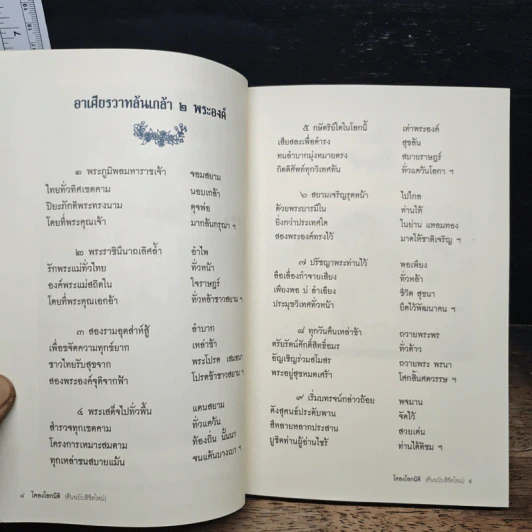 อาเศียรวาทล้นเกล้า ๒ พระองค์
๑ พระภูมิพลมหาราชเจ้า จอมสยาม
ไทยทั่วทิศเขตคาม นอบเกล้า
ปิยะภักดิพระทรงนาม ดุจพ่อ
โดยที่พระคุณเจ้า มากล้นกรุณา ฯ
๒ พระราชินีนาถเลิศล้ำ อำไพ
รักพระแม่ทั่วไทย ทั่วหน้า
องค์พระแม่สถิตใน ใจราษฎร์
โดยที่พระคุณเอกอ้า ทั่วหล้าชาวสยาม ฯ
๓ สองรามอุตส่าห์สู้ ลำบาก
เพื่อขจัดความทุกข์ยาก เหล่าข้า
ชาวไทยรับสุขจาก พระโปรด เสมอนา
สองพระองค์จุติจากฟ้า โปรดข้าชาวสยาม ฯ
๔ พระเสด็จไปทั่วพื้น แดนสยาม
สำรวจทุกเขตคาม ทั่วแคว้น
โครงการเหมาะสมตาม ท้องถิ่น นั้นนา
ทุกเหล่าชนสบายแม้น จนแค้นบางเบา ฯ
๘ โคลงโลกนิติ (ต้นฉบับลิขิตใหม่)
๕ กษัตริย์ใดในโลกนี้ เท่าพระองค์
เสียสละเพื่อดำรง สุขสันต์
ทนลำบากมุ่งหมายตรง สบายราษฎร์
กิตติศัพท์ทุกวิเทศทัน ทั่วแคว้นโลกา ฯ
๖ สยามเจริญรุดหน้า ไปไกล
ด้วยพระบารมีใน ท่านไท้
ยิ่งกว่าประเทศใด ในย่าน แหลมทอง
สองพระองค์ทรงไว้ มาดให้ชาติเจริญ ฯ
๗ ปรัชญาพระท่านไว้ พอเพียง
ลือเลื่องกำจายเสียง ทั่วหล้า
เพียงพอ บ่ ลำเอียง ชีวิต สุขนา
ประมุขวิเทศทั่วหน้า ยึดไว้พัฒนาคน ฯ
๘ ทุกวันคืนเหล่าข้า ถวายพระพร
ตรัยรัตน์ศักดิ์สิทธิ์อมร ทั่วด้าว
อัญเชิญร่วมสโมสร ถวายพระ พรนา
พระอยู่สุขหมดเศร้า โศกสิ้นศตวรรษ ฯ
๙ เริ่มบทรจน์กล่าวถ้อย พจมาน
ดังสุคนธ์ประดับพาน จัดไว้
สีหลายหลากประสาน สวยเด่น
บูชิตท่านผู้อ่านไซร้ ท่านได้ติชม ฯ
โคลงโลกนิติ (ต้นฉบับลิขิตใหม่) ๙